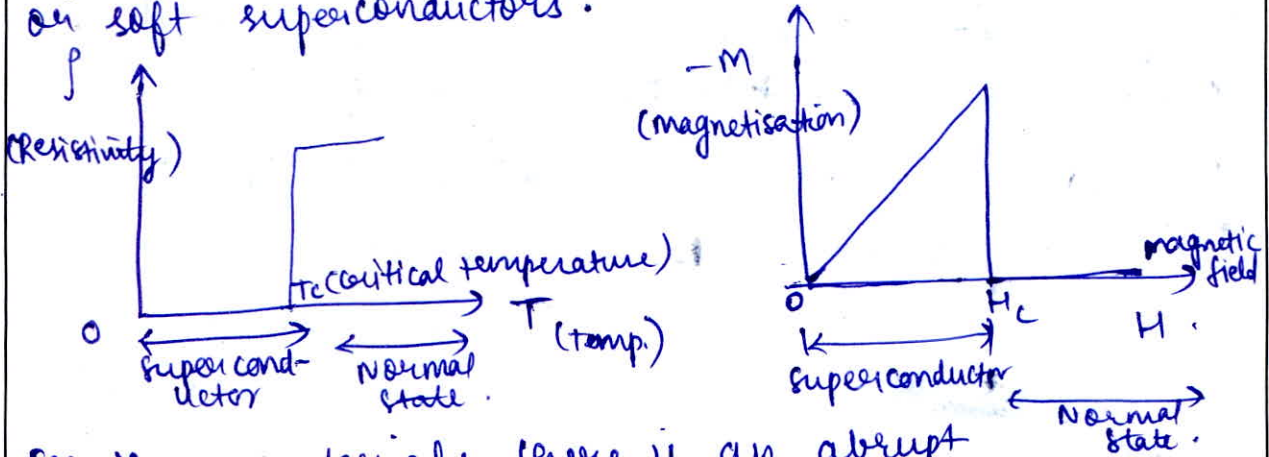 or soft superconductors.
ρ
(Resistivity)
Tc (critical temperature)
T
(temp.)
O
supercond-
uctor
Normal
state.
-M
(magnetisation)
magnetic
field
O
Hc
H.
superconductor
Normal
state.
there is an abrupt